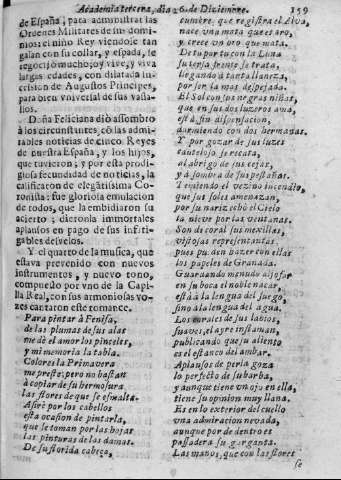 Academia tercera, dia 26. de Diziembre. 159
de España, para administrar las
Ordenes Militares de sus domi-
nios: el niño Rey viendose tan
galan con su collar, y espada, se
regozijò mucho, y vive, y viva
largas edades, con dilatada su-
cession de Augustos Principes,
para bien vniversal de sus vasa-
llos.
Doña Feliciana diò assombro
à los circunstantes, cõ las admi-
tables noticias de cinco Reyes
de nuestra España, y los hijos,
que tuvieron; y por esta prodi-
giosa fecundidad de noticias, la
calificaron de elegãtissima Co-
ronista: fue gloriosa emulacion
de todos, que la embidiaron su
acierto; dieronla immortales
aplausos en pago de sus infati-
gables desvelos.
Y el quarto de la musica, que
estava prevenido con nuevos
instrumentos, y nuevo tono,
compuesto por vno de la Capi-
lla Real, con sus armoniosas vo-
zes cantaron este romance.
Para pintar à Fenisa,
de las plumas de sus alas
me dè el amor los pinceles,
y mi memoria la tabla.
Colores la Primavera
me preste; pero no bastan
à copiar de su hermosura
las flores de que se esmalta.
Asirè por los cabellos
esta ocasion de pintarla,
que se toman por las hojas
las pinturas de las damas.
De su florida cabeça,
cumbre, que registra el Alva,
nace vna mata que es oro,
y crece vn oro que mata.
De su parte con la Luna
su tersa frente se trata,
llegando à tanta llaneza,
por ser la mas despejada.
El Sol con sus negras niñas,
que en sus dos luzeros ama,
està à su disposicion,
durmiendo con dos hermanas.
Y por gozar de sus luzes
cauteloso se recata,
al abrigo de sus cejas,
y à sombra de sus pestañas.
Temiendo el vezino incendio,
que sus soles amenazan,
por su nariz echò el Cielo
la nieve por las ventanas.
Son de coral sus mexillas,
vistosas representantas
pues pueden hazer con ellas
los papeles de Granada.
Guardando menudo aljofar
en su boca el noble nacar,
està à la lengua del fuego,
sino à la lengua del agua.
Los corales de sus labios,
suaves, el ayre inflaman,
publicando que su aliento
es el estanco del ambar.
Aplausos de perla goza
lo perfecto de su barba,
y aunque tiene vn ojo en ella,
tiene su opinion muy llana.
Es en lo exterior del cuello
vna admiracion nevada,
aunque por de dentro es
passadera su garganta.
Las manos, que con las flores
se